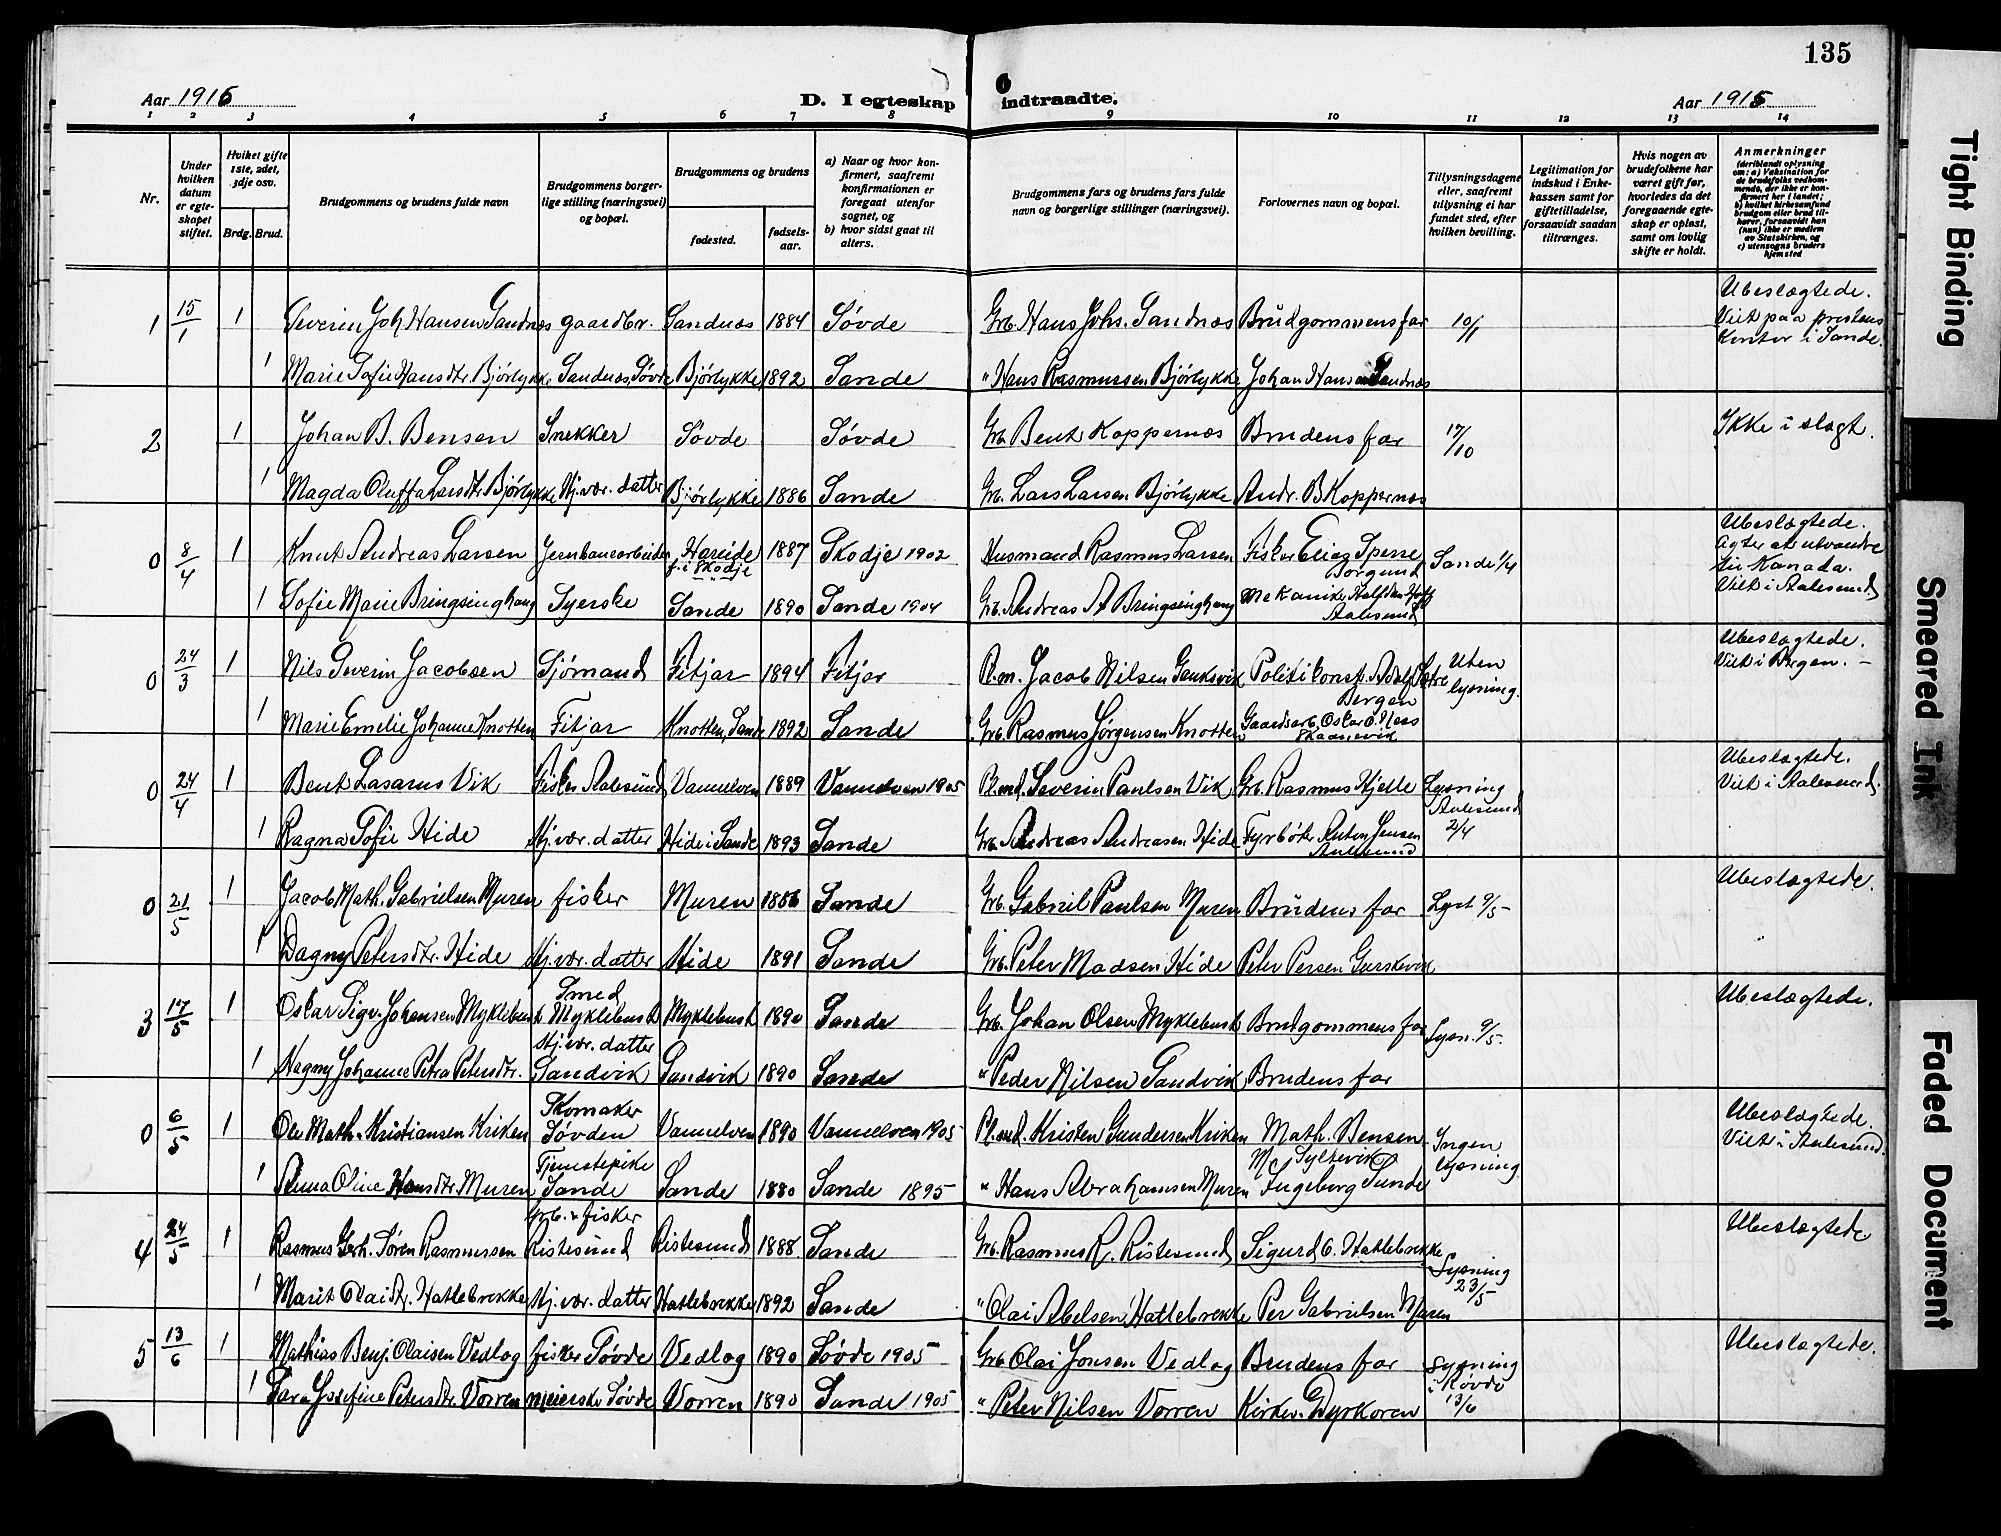 135
Aar 1915
D. I egteskap indtraadte.
Aar 1915
1 2 3 4 5 6 7 8 9 10 11 12 13 14
Nr.
Under hvilken datum er egteskapet stiftet.
Hvilket gifte 1ste, 2det, 3dje osv.
Brdg. Brud.
Brudgommens og brudens fulde navn
Brudgommens borgerlige stilling (næringsvei) og bopæl.
Brudgommens og brudens
fødested.
fødselsaar.
a) Naar og hvor konfirmert, saafremt konfirmationen er foregaat utenfor sognet, og
b) hvor sidst gaat til alters.
Brudgommens fars og brudens fars fulde navn og borgerlige stillinger (næringsvei).
Forlovernes navn og bopæl.
Tillysningsdagene eller, saafremt tillysning ei har fundet sted, efter hvilken bevilling.
Legitimation for indskud i Enkekassen samt for giftetilladelse, forsaavidt saadan tiltrænges.
Hvis nogen av brudefolkene har været gift før, hvorledes da det foregaaende egteskap er opløst, samt om lovlig skifte er holdt.
Anmerkninger (deriblandt oplysning om: a) Vaksination for de brudefolks vedkommende, der ikke er konfirmert her i landet; b) hvilket kirkesamfund brudgom eller brud tilhører, forsaavidt han (hun) ikke er medlem av Statskirken, og c) utensogns bruders hjemsted
1 15/1 1 Severin Joh. Hansen Sandnæs gaardbr. Sandnæs 1884 Søvde Grb. Hans Johs. Sandnæs Brudgommens far 10/1 Ubeslægtede. Viet paa prestens Kontor i Sande.
1 Marie Sofie Hansdtr. Bjørlykke Sandnæs, Søvde Bjørlykke 1892 Sande " Hans Rasmussen Bjørlykke Johan Hansen Sandnæs
2 1 Johan B. Bensen Snekker Søvde Søvde Grb. Bent Koppernæs Brudens far 17/10 Ikke i slægt.
1 Magda Oluffa Larsdtr. Bjørlykke Hj.vær. datter Bjørlykke 1886 Sande Grb. Lars Larsen Bjørlykke Andr. B Koppernæs
0 8/4 1 Knut Andreas Larsen Jernbanearbeider Hareide f. i Skodje 1887 Skodje 1902 Husmand Rasmus Larsen Fisker Elias Sperre Borgund Sande 1/4 Ubeslægtede. Agter at utvandre til Kanada. Viet i Aalesund
1 Sofie Marie Bringsinghaug Syerske Sande 1890 Sande 1904 Grb. Andreas A Bringsinghaug Mekaniker Aalesund
0 24/3 1 Nils Severin Jacobsen Sjømand Fitjar 1894 Fitjar P.m. Jacob Nilsen Politikonst. Adolf Sætre Bergen Uten lysning. Ubeslægtede. Viet i Bergen. –
1 Marie Emelie Johanne Knotten Fitjar Knotten, Sande 1892 Sande Grb. Rasmus Jørgensen Knotten Gaardsarb. Oskar O. Næss Skaanevik
0 24/4 1 Bent Lasarus Vik Fisker Aalesund Vannelven 1889 Vannelven 1905 Pl.md. Severin Paulsen Vik Grb. Rasmus Hjelle Lysning Aalesund 2/4 Ubeslægtede. Viet i Aalesund.
1 Ragna Sofie Hide Hj.vær. datter Hide i Sande 1893 Sande Grb. Andreas Andreasen Hide Fyrbøter Anton Jensen Aalesund
0 21/5 1 Jacob Math. Gabrielsen Muren fisker Muren 1886 Sande Grb. Gabriel Paulsen Muren Brudens far Lyst 9/5 – Ubeslægtede.
1 Dagny Petersdtr. Hide Hj.vær. datter Hide 1891 Sande Grb. Peter Madsen Hide Peter Persen Gurskevik
3 17/5 1 Oskar Sigv. Johansen Myklebust Smed Myklebust Myklebust 1890 Sande Grb. Johan Olsen Myklebust Brudgommens far Lysn. 9/5. Ubeslægtede.
1 Dagny Johanne Petra Petersdtr. Hj.vær. datter Sandvik Sandvik 1890 Sande " Peder Nilsen Sandvik Brudens far
0 6/5 1 Ole Math. Kristiansen Kriken Skomaker Søvden Vannelven 1890 Vannelven 1905 Pl.md. Kristen Gundersen Kriken Math. Bensen Syltevik Ingen lysning Ubeslægtede. Viet i Aalesund.
1 Anna Oline Hansdtr. Muren Tjenestepike Sande Sande 1880 Sande 1895 " Hans Abrahamsen Muren Ingeborg Sunde
4 24/5 1 Rasmus Gerh. Søren Rasmussen Grb. & fisker Ristesund Ristesund 1888 Sande Grb. Rasmus R. Ristesund Sigurd O. Hatlebrekke Lysning 23/5 Ubeslægtede
1 Marit Olaidtr. Hatlebrekke Hj.vær. datter Hatlebrekke 1892 Sande " Olai Abelsen Hatlebrekke Per Gabrielsen Muren
5 13/6 1 Mathias Benj. Olaisen Vedlog fisker Søvde Vedlog 1890 Søvde 1905 Grb. Olai Jonsen Vedlog Brudens far Lysning i Røvde 13/6 Ubeslægtede.
1 Sara Josefine Petersdtr. Vorren meierske Søvde Vorren 1890 Sande 1905 " Peter Nilsen Vorren Kirkes. Dyrkoren
Tight Binding
Smeared Ink
Faded Document